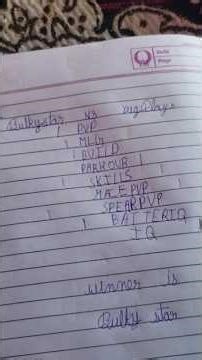 Bulkystar vs bigplays
1 PVP
1 MLG
1 BUILD
PARKOUR 1
1 SKILLS 1
MACE PVP 1
1 SPEAR PVP
1 BATTERIQ
IQ
winner is
Bulky star